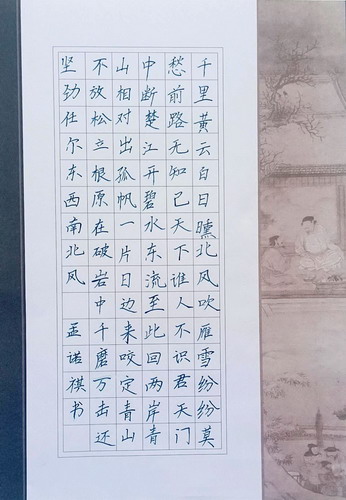 千里黄云白日曛北风吹雁雪纷纷莫
愁前路无知己天下谁人不识君天门
中断楚江开碧水东流至此回两岸青
山相对出孤帆一片日边来咬定青山
不放松立根原在破岩中千磨万击还
坚劲任尔东西南北风 孟诺祺书